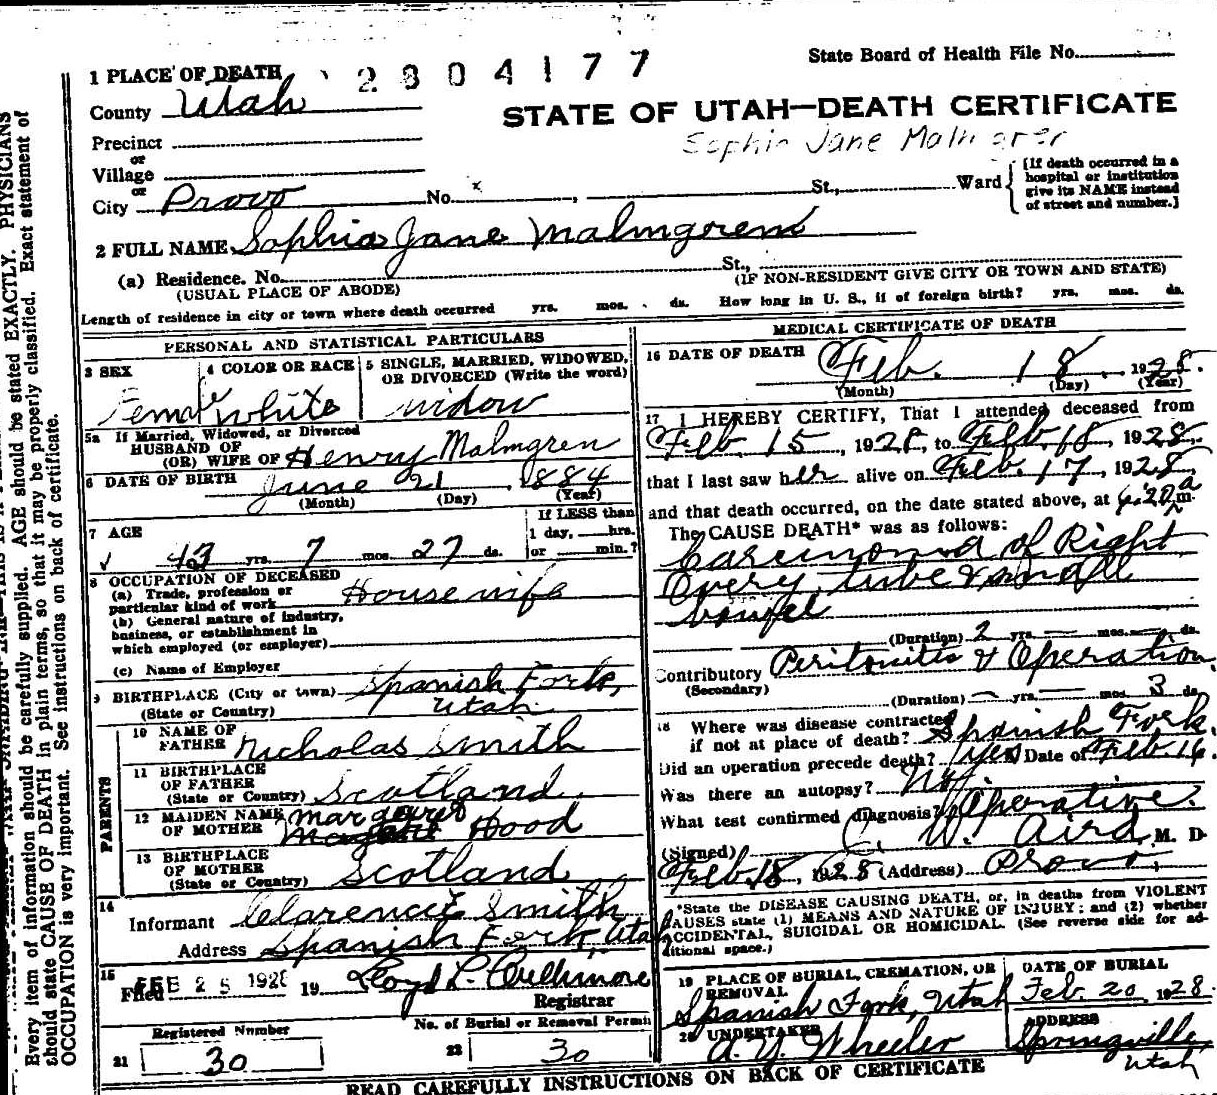 State Board of Health File No.
1 PLACE OF DEATH 2804177
County Utah
STATE OF UTAH—DEATH CERTIFICATE
Precinct
Sophia Jane Malmgren
or
Village
or
City Provo No. St., Ward
[If death occurred in a
hospital or institution
give its NAME instead
of street and number.]
2 FULL NAME Sophia Jane Malmgren
(a) Residence. No. St.,
(USUAL PLACE OF ABODE) (IF NON-RESIDENT GIVE CITY OR TOWN AND STATE)
Length of residence in city or town where death occurred yrs. mos. ds. How long in U. S., if of foreign birth? yrs. mos. ds.
PERSONAL AND STATISTICAL PARTICULARS
3 SEX 4 COLOR OR RACE 5 SINGLE, MARRIED, WIDOWED,
OR DIVORCED (Write the word)
Female White widow
5a If Married, Widowed, or Divorced
HUSBAND OF
(OR) WIFE OF Henry Malmgren
6 DATE OF BIRTH June 21, 1884
(Month) (Day) (Year)
7 AGE If LESS than
1 day, hrs.
43 yrs. 7 mos. 27 ds. or min.?
8 OCCUPATION OF DECEASED
(a) Trade, profession or
particular kind of work Housewife
(b) General nature of industry,
business, or establishment in
which employed (or employer)
(c) Name of Employer
9 BIRTHPLACE (City or town) Spanish Fork,
(State or Country) Utah
PARENTS
10 NAME OF
FATHER Nicholas Smith
11 BIRTHPLACE
OF FATHER
(State or Country) Scotland
12 MAIDEN NAME
OF MOTHER Margaret Hood
13 BIRTHPLACE
OF MOTHER
(State or Country) Scotland
14
Informant Clarence Smith
Address Spanish Fork, Utah
15
Filed FEB 25 1928 19 Lloyd L. Cullimore
Registrar
Registered Number No. of Burial or Removal Permit
21 30 22 30
MEDICAL CERTIFICATE OF DEATH
16 DATE OF DEATH Feb. 18, 1928.
(Month) (Day) (Year)
17 I HEREBY CERTIFY, That I attended deceased from
Feb. 15, 1928, to Feb. 18, 1928,
that I last saw her alive on Feb. 17, 1928,
and that death occurred, on the date stated above, at 6:20 a m.
The CAUSE DEATH* was as follows:
Carcinoma of Right
Overy, tube & small
bowel
(Duration) 2 yrs. mos. ds.
Contributory Peritonitis & Operation.
(Secondary)
(Duration) yrs. mos. 3 ds.
18 Where was disease contracted
if not at place of death? Spanish Fork.
Did an operation precede death? yes Date of Feb 16.
Was there an autopsy? No
What test confirmed diagnosis? Operative.
(Signed) C. W. Aird, M. D
Feb. 18, 1928 (Address) Provo,
*State the DISEASE CAUSING DEATH, or, in deaths from VIOLENT
CAUSES state (1) MEANS AND NATURE OF INJURY; and (2) whether
ACCIDENTAL, SUICIDAL OR HOMICIDAL. (See reverse side for ad-
ditional space.)
19 PLACE OF BURIAL, CREMATION, OR
REMOVAL
Spanish Fork, Utah
DATE OF BURIAL
Feb. 20 1928.
20 UNDERTAKER
A. Y. Wheeler
ADDRESS
Springville,
Utah
READ CAREFULLY INSTRUCTIONS ON BACK OF CERTIFICATE
Every item of information should be carefully supplied. AGE should be stated EXACTLY. PHYSICIANS
should state CAUSE OF DEATH in plain terms, so that it may be properly classified. Exact statement of
OCCUPATION is very important. See instructions on back of certificate.